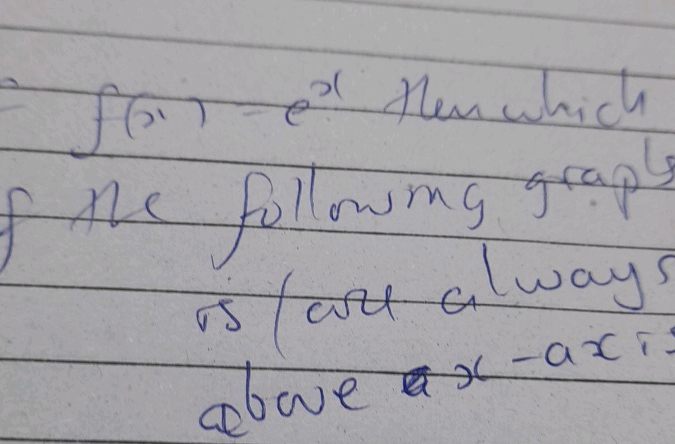 f(x) = e^x then which
f the following graphs
is/are always
above x-axis